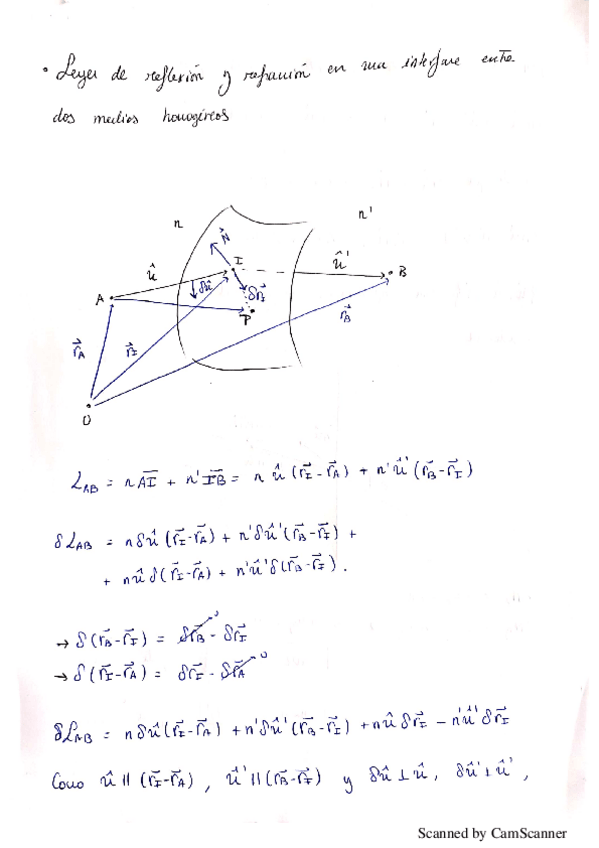 • Leyes de reflexión y refracción en una interfase entre
dos medios homogéneos
n
n'
N⃗
I
û
δû
δr⃗_I
û'
B
A
P
r⃗_A
r⃗_I
r⃗_B
O
L_AB = n A̅I̅ + n' I̅B̅ = n û (r⃗_I - r⃗_A) + n' û' (r⃗_B - r⃗_I)
δL_AB = n δû (r⃗_I - r⃗_A) + n' δû' (r⃗_B - r⃗_I) +
+ n û δ(r⃗_I - r⃗_A) + n' û' δ(r⃗_B - r⃗_I).
→ δ(r⃗_B - r⃗_I) = δr⃗_B⁰ - δr⃗_I
→ δ(r⃗_I - r⃗_A) = δr⃗_I - δr⃗_A⁰
δL_AB = n δû (r⃗_I - r⃗_A) + n' δû' (r⃗_B - r⃗_I) + n û δr⃗_I - n' û' δr⃗_I
Como û || (r⃗_I - r⃗_A), û' || (r⃗_B - r⃗_I) y δû ⊥ û, δû' ⊥ û',
Scanned by CamScanner